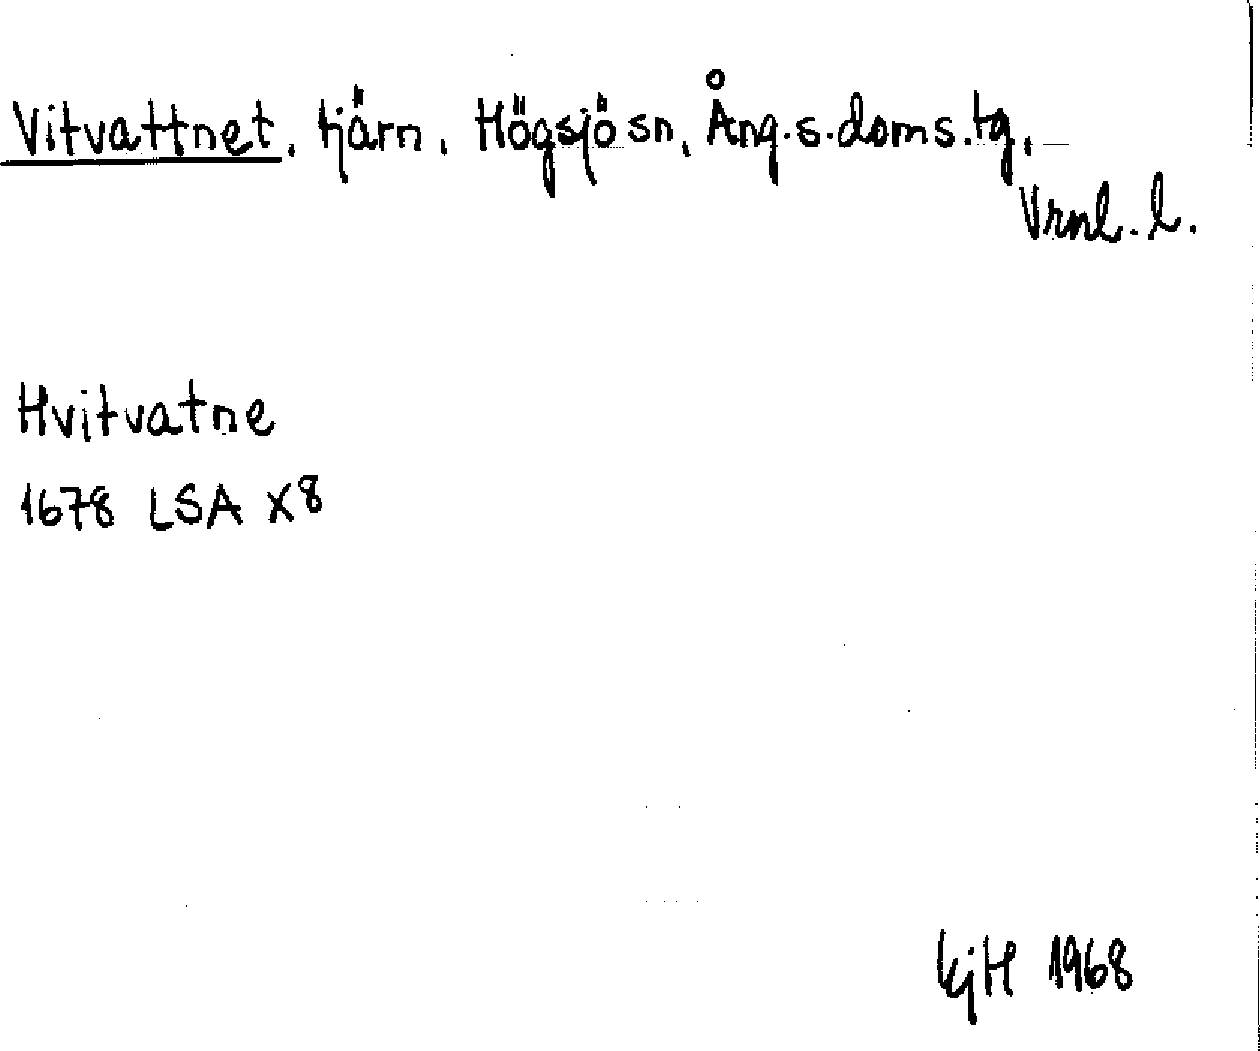 Vitvattnet, tjärn, Högsjö sn, Ång.s.doms.tg,
Vrnl. l.
Hvitvatne
1678 LSA X8
kjH 1968